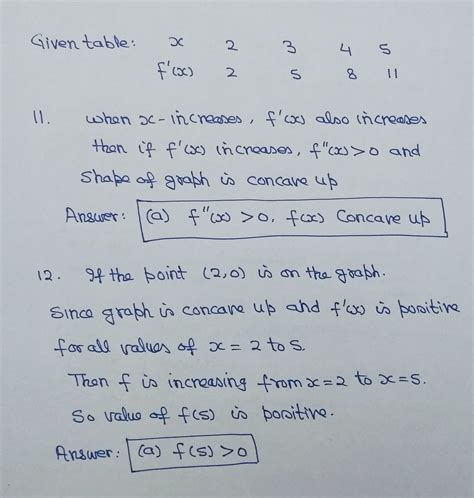 Given table: x 2 3 4 5
f'(x) 2 5 8 11
11. when x-increases, f'(x) also increases
then if f'(x) increases, f''(x)>0 and
Shape of graph is concave up
Answer: (a) f''(x) >0, f(x) Concave up
12. If the point (2,0) is on the graph.
Since graph is concave up and f'(x) is positive
for all values of x = 2 to 5.
Then f is increasing from x=2 to x=5.
So value of f(5) is positive.
Answer: (a) f(5) >0